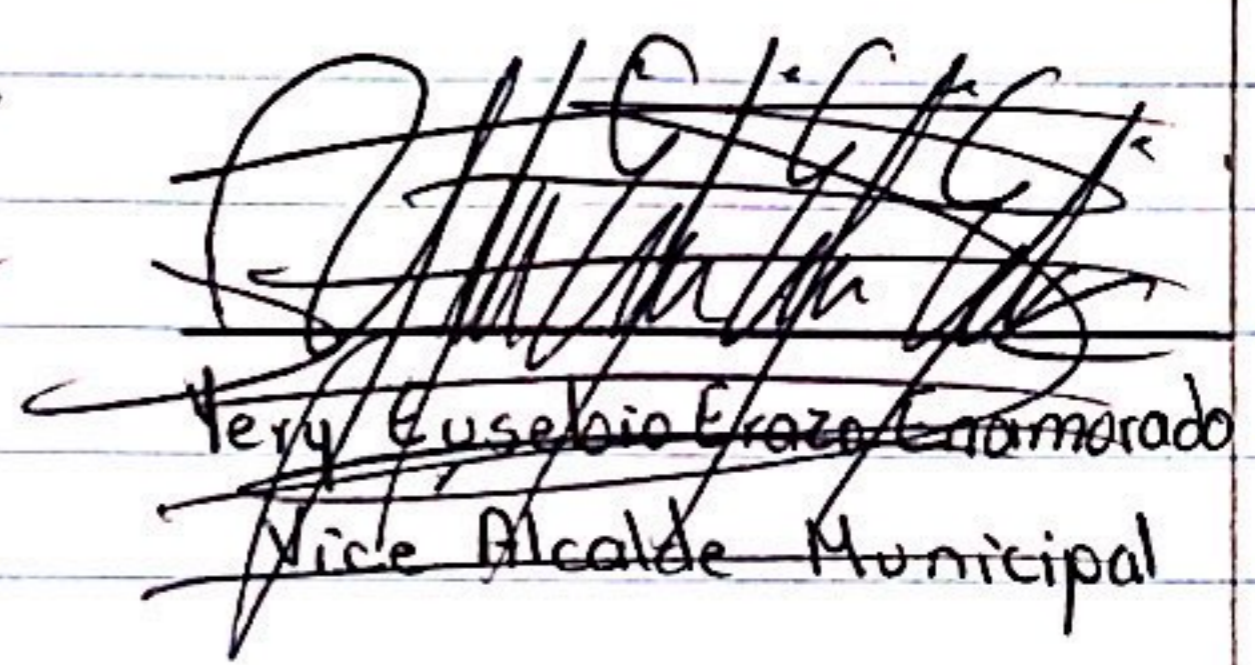 Yery Eusebio Erazo Enamorado
Vice Alcalde Municipal